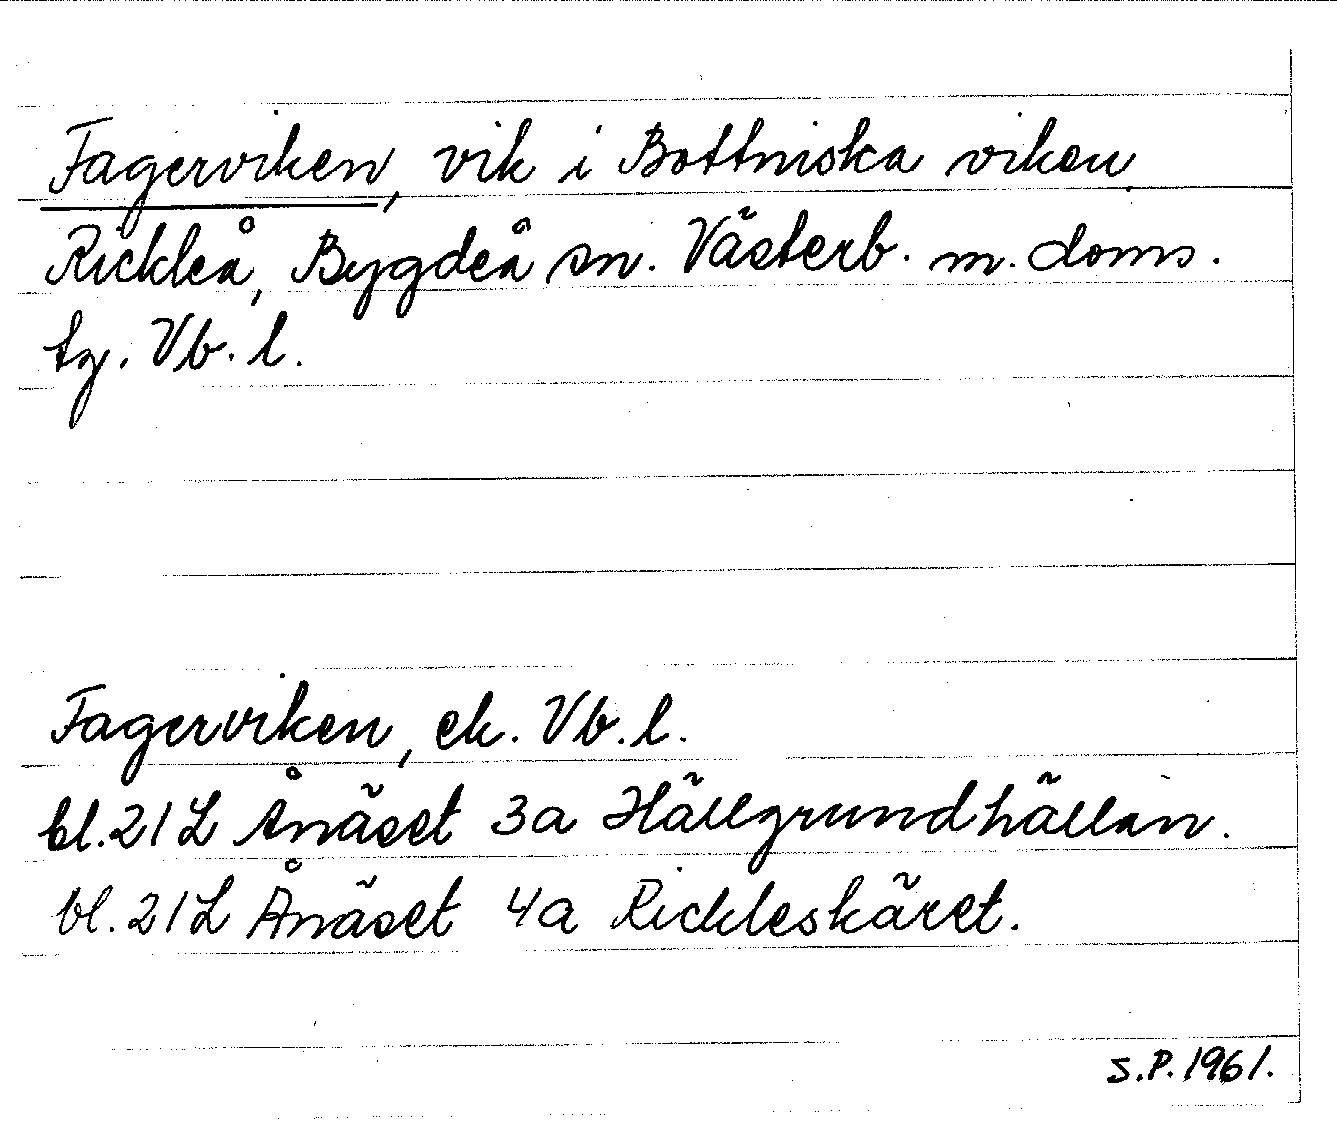 Fagerviken, vik i Bottniska viken,
Rickleå, Bygdeå sn. Västerb. m. doms.
tg. Vb. l.
Fagerviken, ek. Vb. l.
bl. 21L Ånäset 3a Hällgrundhällan.
bl. 21L Ånäset 4a Rickleskäret.
S.P. 1961.